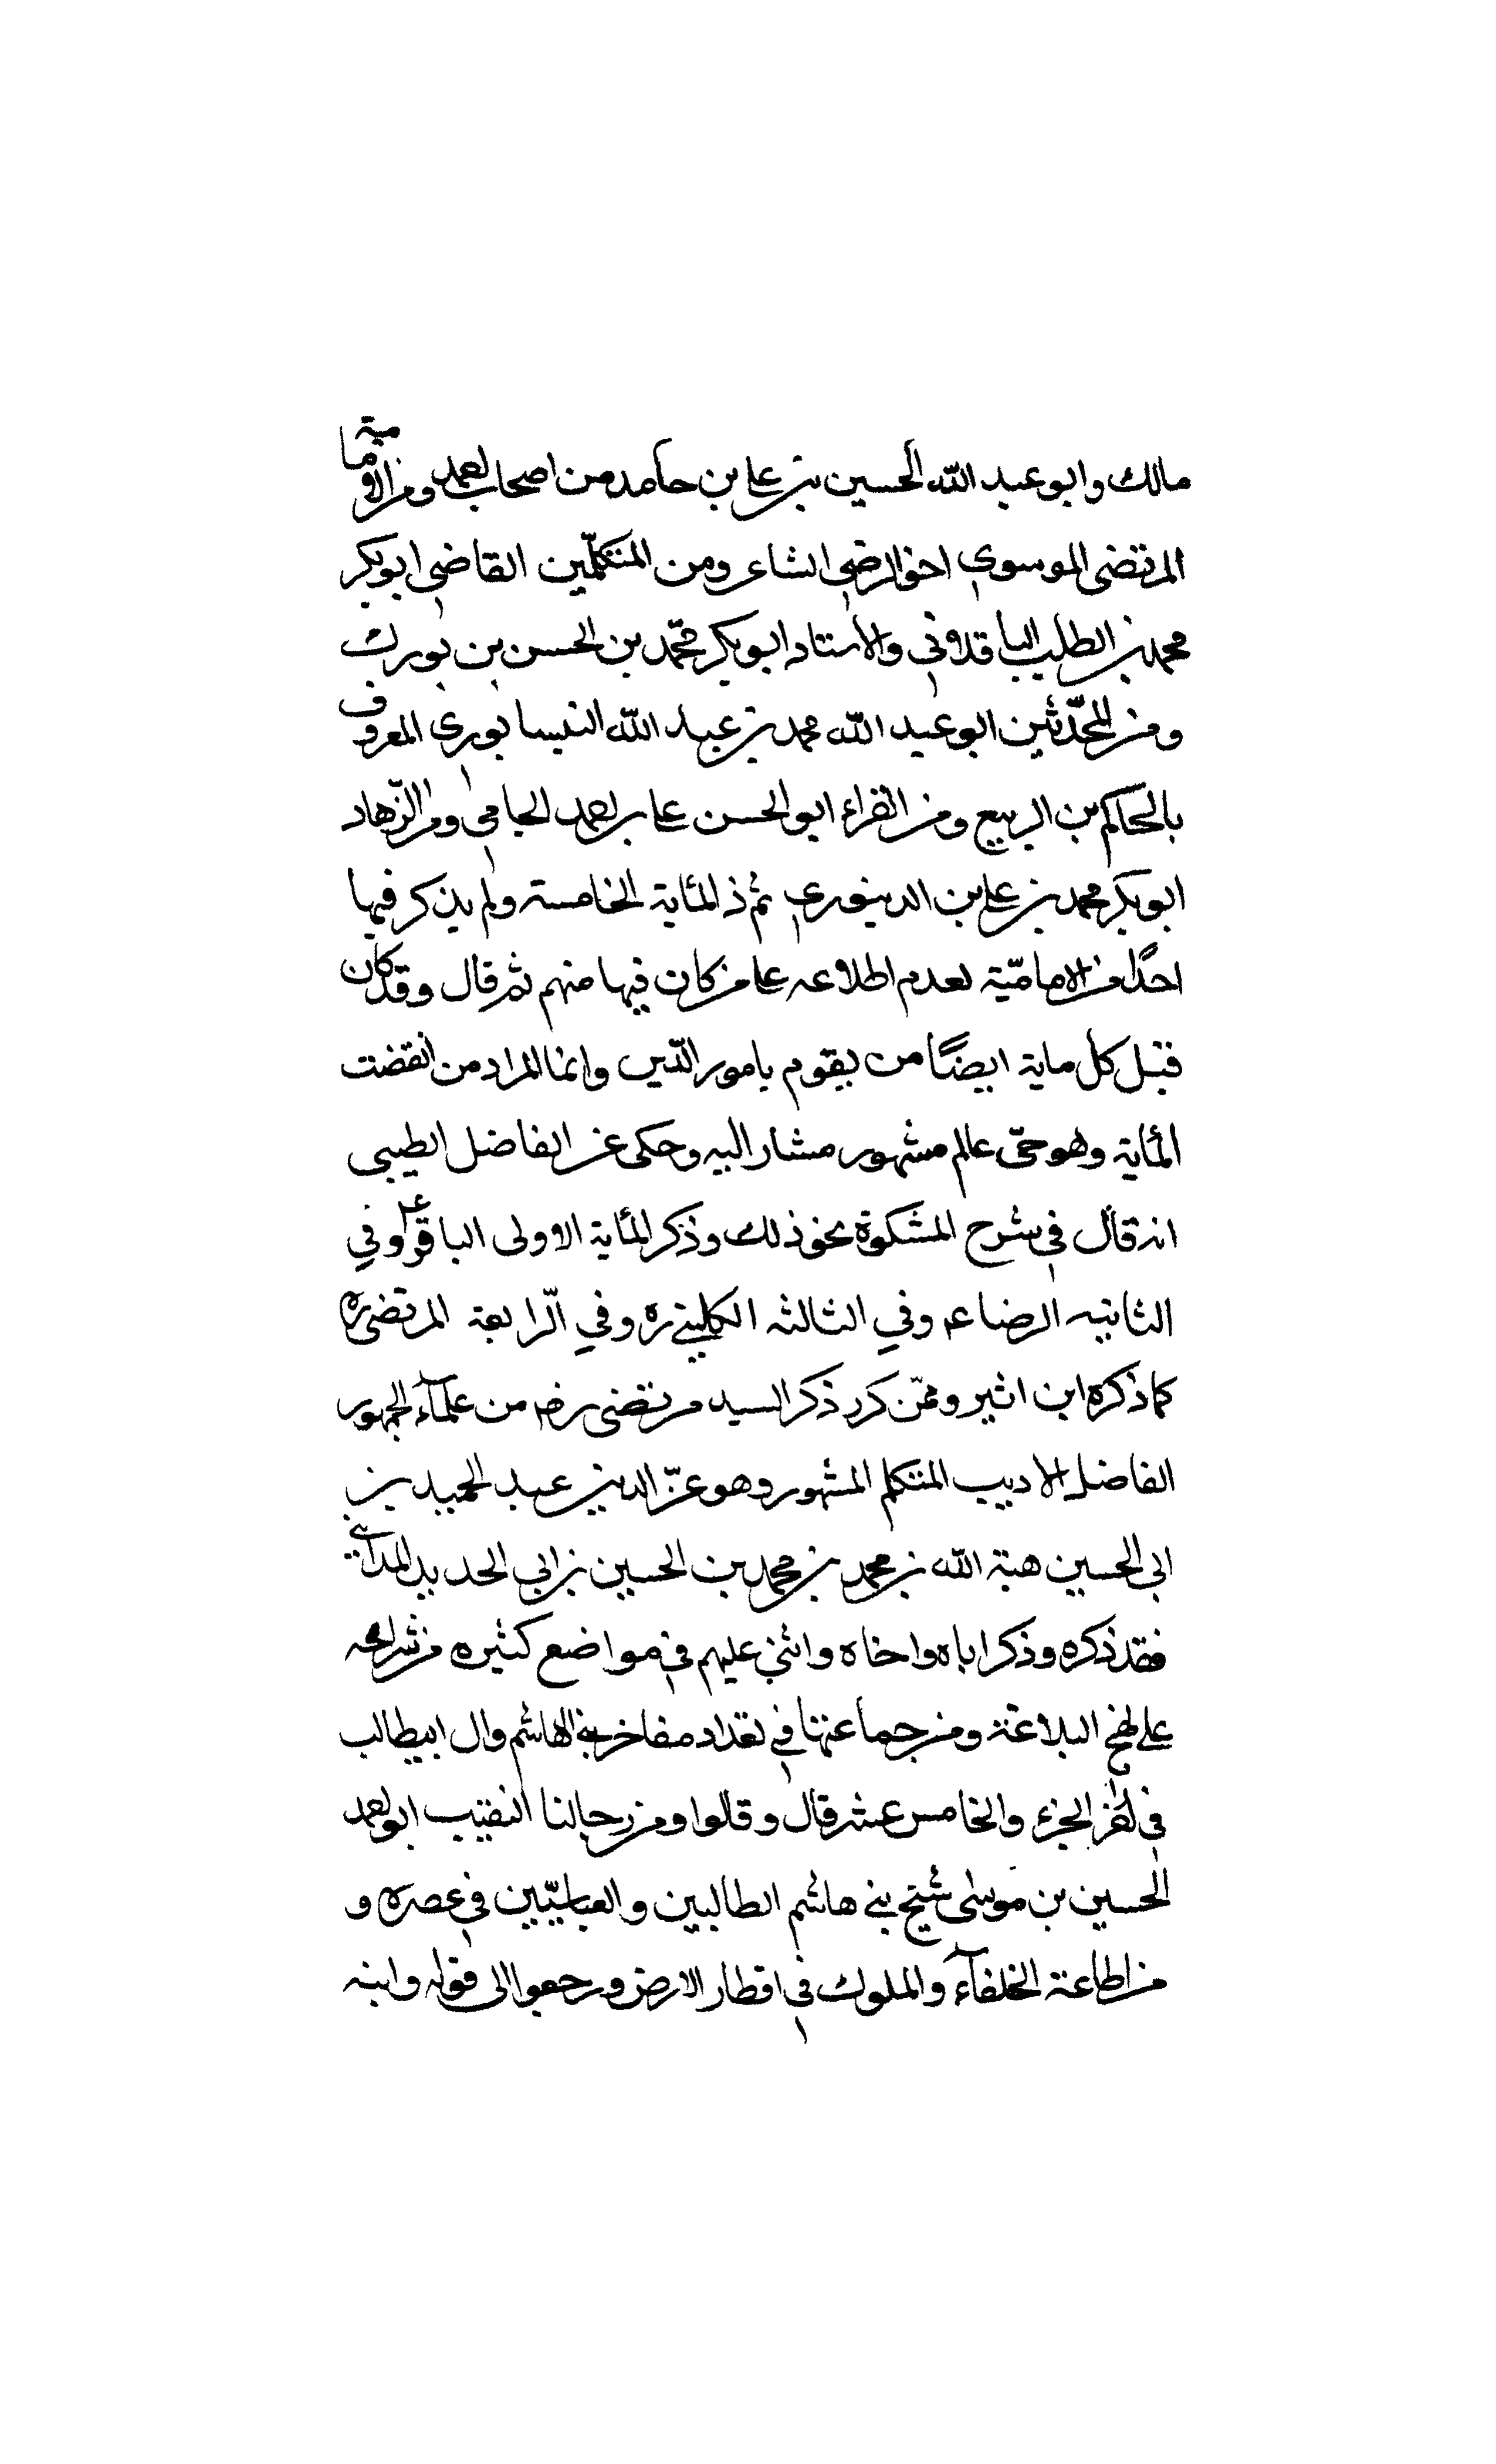 مالك وابو عبد الله الحسين بن علي بن حامد من اصحاب احمد ومن الامامية
المرتضى الموسوي اخو الرضي الشاعر ومن المتكلّمين القاضي ابو بكر
محمد بن الطيب الباقلاني والاستاد ابو بكر محمّد بن الحسن بن بورك
ومن المحدّثين ابو عبد الله محمد بن عبد الله النيسابوري المعروف
بالحاكم بن الربيع ومن القراء ابو الحسن علي بن احمد الحمامي ومن الزّهاد
ابو بكر محمد بن علي بن الدينوري ثم ذ المأية الخامسة ولم يذكر فيها
احدًا من الاماميّة لعدم اطلاعه على من كان فيها منهم ثم قال وقد كان
قبل كل ماية ايضًا من يقوم بامور الدّين وانما المراد من انقضت
المأية وهو حىّ عالم مشهور مشار اليه وحكى عن الفاضل الطيبي
انه قال في شرح المشكوة نحو ذلك وذكر المأية الاولى الباقر ع وفي
الثانيه الرضا ع وفي الثالثه الكليني ره وفي الرّابعة المرتضى ره
كما ذكره ابن اثير وممّن كرر ذكر السيد مرتضى رض من علمآء الجمهور
الفاضل الاديب المتكلم المشهور وهو عزّ الدين عبد الحميد بن
ابي الحسين هبة الله بن محمد بن محمد بن الحسين بن ابي الحديد المدائني
فقد ذكره وذكر اباه واخاه واثنى عليهم في مواضع كثيره من شرحه
على نهج البلاغة ومن جماعتها في تعداد مفاخر بني الهاشم وال ابيطالب
في الجزء والخامس عشر قال وقالوا ومن رجالنا النقيب ابو احمد
الحسين بن موسى شيخ بني هاشم الطالبين والعباسيّين في عصره و
من اطاعة الخلفآء والملوك في اقطار الارض ورجعوا الى قوله وابنه